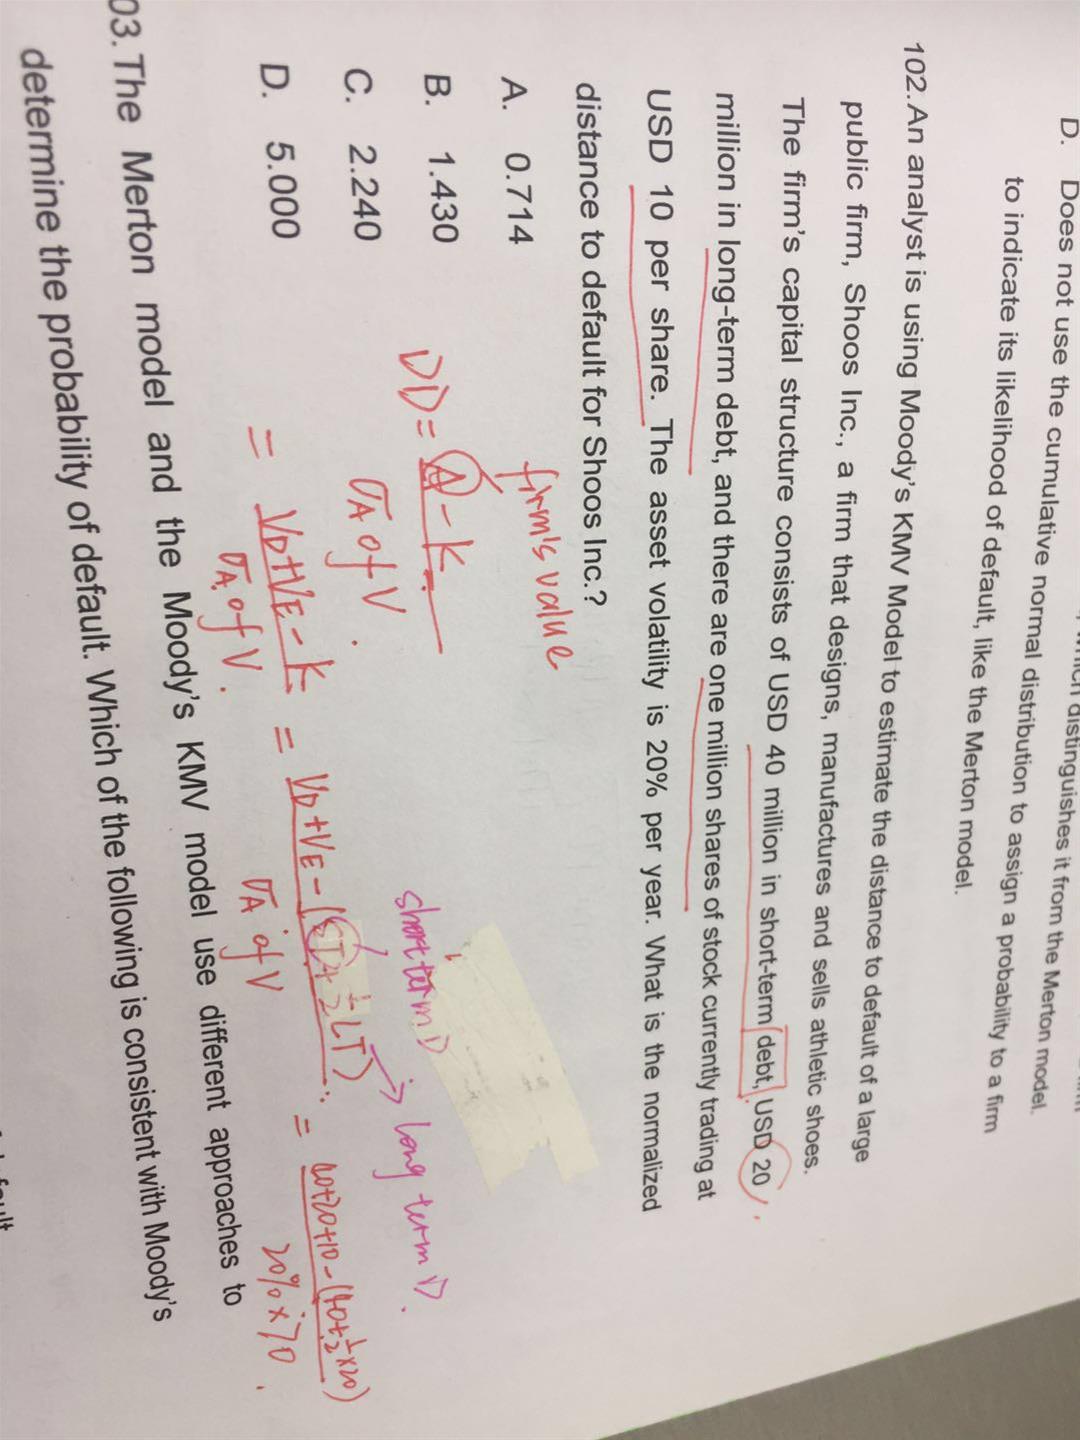 D. Does not use the cumulative normal distribution to assign a probability to a firm
to indicate its likelihood of default, like the Merton model.
102.An analyst is using Moody's KMV Model to estimate the distance to default of a large
public firm, Shoos Inc., a firm that designs, manufactures and sells athletic shoes.
The firm's capital structure consists of USD 40 million in short-term debt, USD 20
million in long-term debt, and there are one million shares of stock currently trading at
USD 10 per share. The asset volatility is 20% per year. What is the normalized
distance to default for Shoos Inc.?
A. 0.714
B. 1.430
C. 2.240
D. 5.000
firm's value
DD = A - K
σA of V.
= VD+VE-K
σA of V.
= VD+VE-(STD+½LT)
σA of V
short term D
long term D.
= 40+20+10-(40+½×20)
20%×70.
03.The Merton model and the Moody's KMV model use different approaches to
determine the probability of default. Which of the following is consistent with Moody's